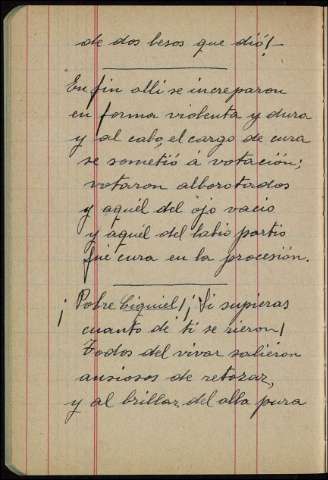 de dos besos que dió!
En fin alli se increparon
en forma violenta y dura
y al cabo, el cargo de cura
se sometió á votación;
votaron alborotados
y aquél del ojo vacio
y aquél del labio partio
fué cura en la procesión.
¡Pobre Eiquiel! ¡Si supieras
cuanto de ti se rieron!
Todos del vivar salieron
ansiosos de retozar,
y al brillar del alba pura